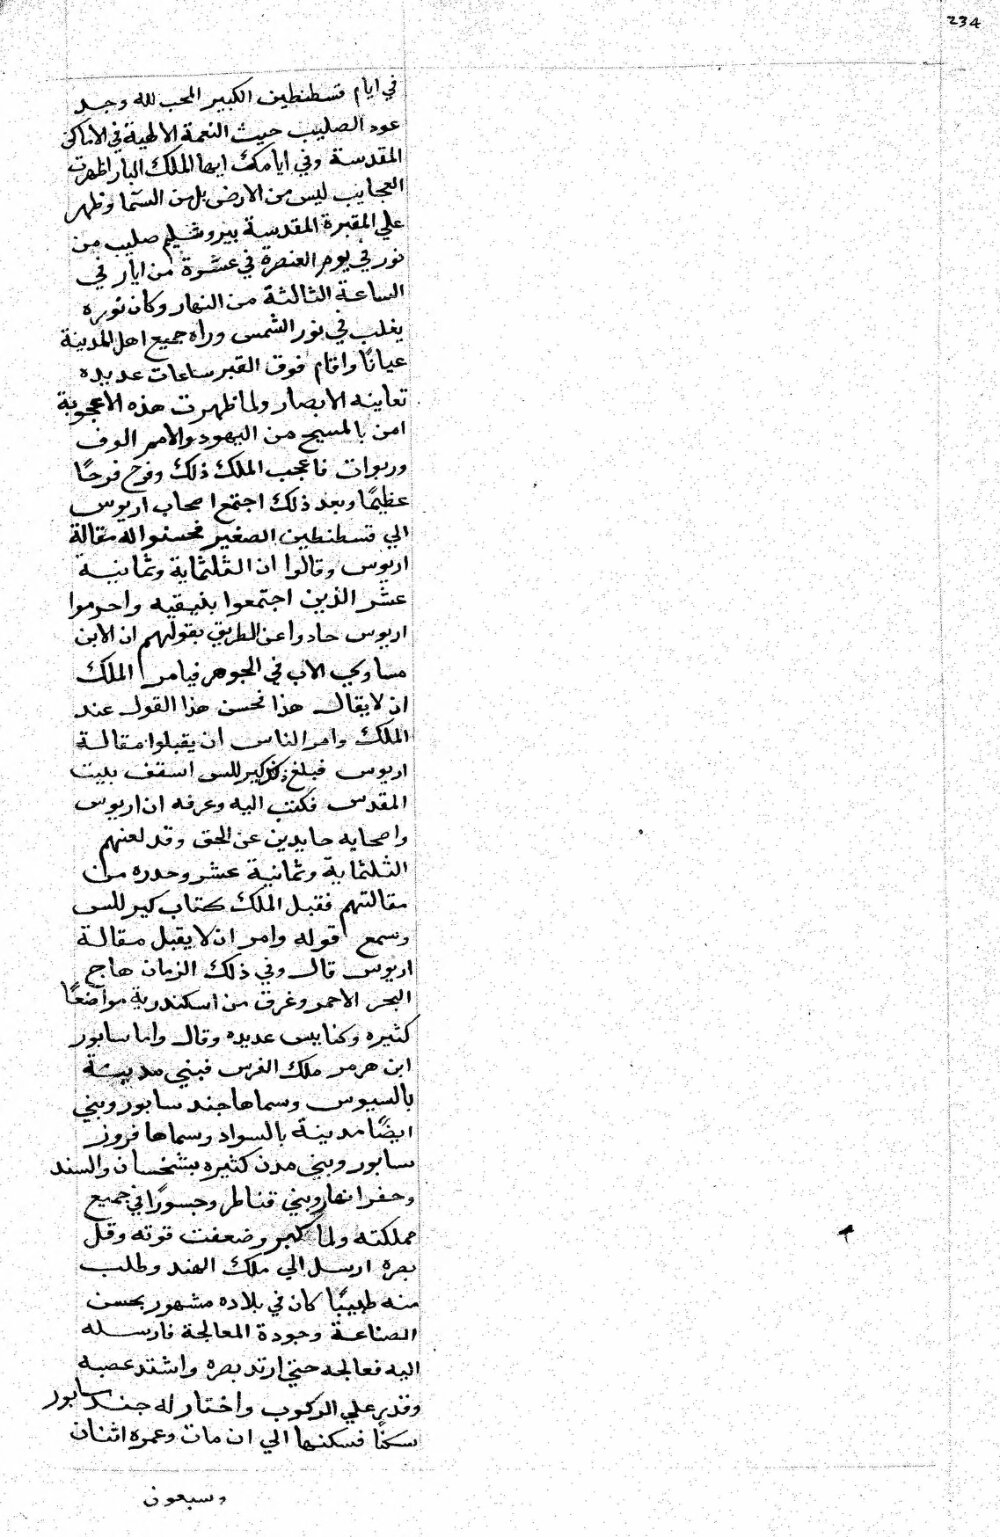 234
في ايام قسطنطين الكبير المحب لله وجد
عود الصليب حيث النعمة الالهية في الاماكن
المقدسة وفي ايامك ايها الملك البار اظهرت
العجايب ليس من الارض بل من السما وظهر
علي المقبرة المقدسة بيروشليم صليب من
نور في يوم العنصرة في عشرة من ايار في
الساعة الثالثة من النهار وكان نوره
يغلب في نور الشمس وراه جميع اهل المدينة
عيانًا واقام فوق القبر ساعات عديده
تعاينه الابصار ولما ظهرت هذه الاعجوبة
امن بالمسيح من اليهود والامم الوف
وربوات فاعجب الملك ذلك وفرح فرحًا
عظيمًا وبعد ذلك اجتمع اصحاب اريوس
الي قسطنطين الصغير فحسنوا له مقالة
اريوس وقالوا ان الثلثماية وثمانية
عشر الذين اجتمعوا بنيقيه واحرموا
اريوس حادوا عن الطريق بقولهم ان الابن
مساوي الاب في الجوهر فيامر الملك
ان لا يقال هذا فحسن هذا القول عند
الملك وامر الناس ان يقبلوا مقالة
اريوس فبلغ ذلك كيرللس اسقف بيت
المقدس فكتب اليه وعرفه ان اريوس
واصحابه حايدين عن الحق وقد لعنهم
الثلثماية وثمانية عشر وحدره من
مقالتهم فقبل الملك كتاب كيرللس
وسمع قوله وامر ان لا يقبل مقالة
اريوس قال وفي ذلك الزمان هاج
البحر الاحمر وغرق من اسكندرية مواضعًا
كثيره وكنايس عديده وقال واما سابور
ابن هرمز ملك الفرس فبني مدينة
بالسوس وسماها جند سابور وبني
ايضًا مدينة بالسواد وسماها فروز
سابور وبني مدن كثيره والسند
وحفر انهار وبني قناطر وجسورًا في جميع
مملكته ولما كبر وضعفت قوته وقل
بصره ارسل الي ملك الهند وطلب
منه طبيبًا كان في بلاده مشهور بحسن
الصناعة وجودة المعالجة فارسله
اليه فعالجه حتي ارتد بصره واشتد عصبه
وقدر علي الركوب واختار له جند سابور
سكنًا فسكنها الي ان مات وعمره اثنان
وسبعون